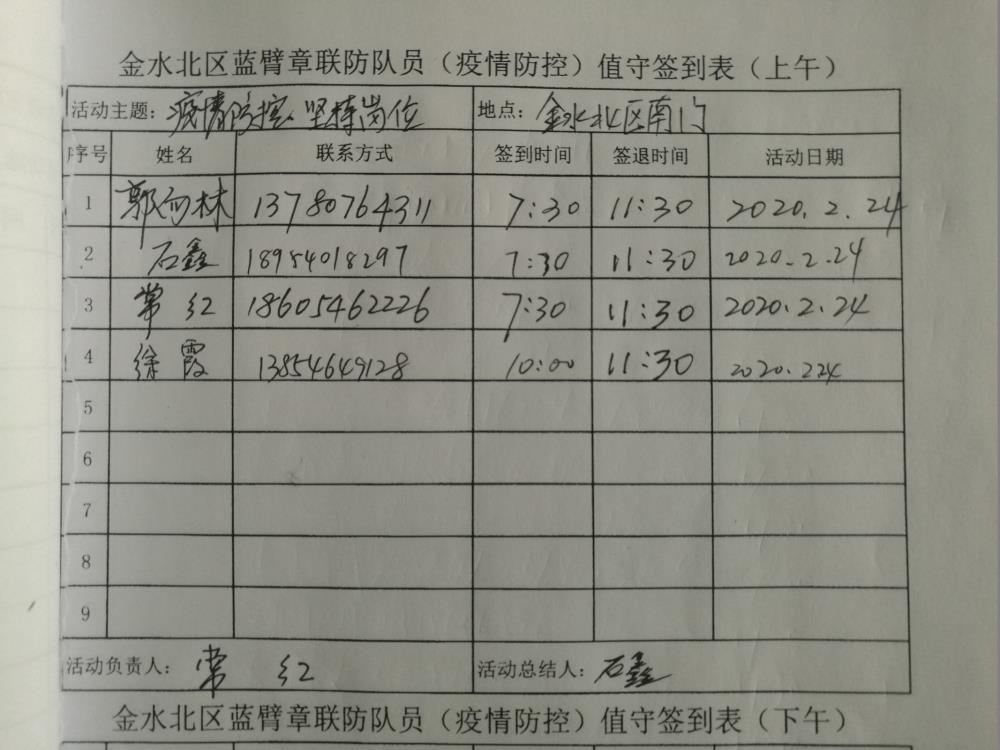 金水北区蓝臂章联防队员（疫情防控）值守签到表（上午）
活动主题：疫情防控 坚持岗位 地点：金水北区南门
序号 姓名 联系方式 签到时间 签退时间 活动日期
1 郭向林 13780764311 7:30 11:30 2020.2.24
2 石鑫 18954018297 7:30 11:30 2020.2.24
3 常红 18605462226 7:30 11:30 2020.2.24
4 徐霞 13854649128 10:00 11:30 2020.224
5
6
7
8
9
活动负责人：常红 活动总结人：石鑫
金水北区蓝臂章联防队员（疫情防控）值守签到表（下午）